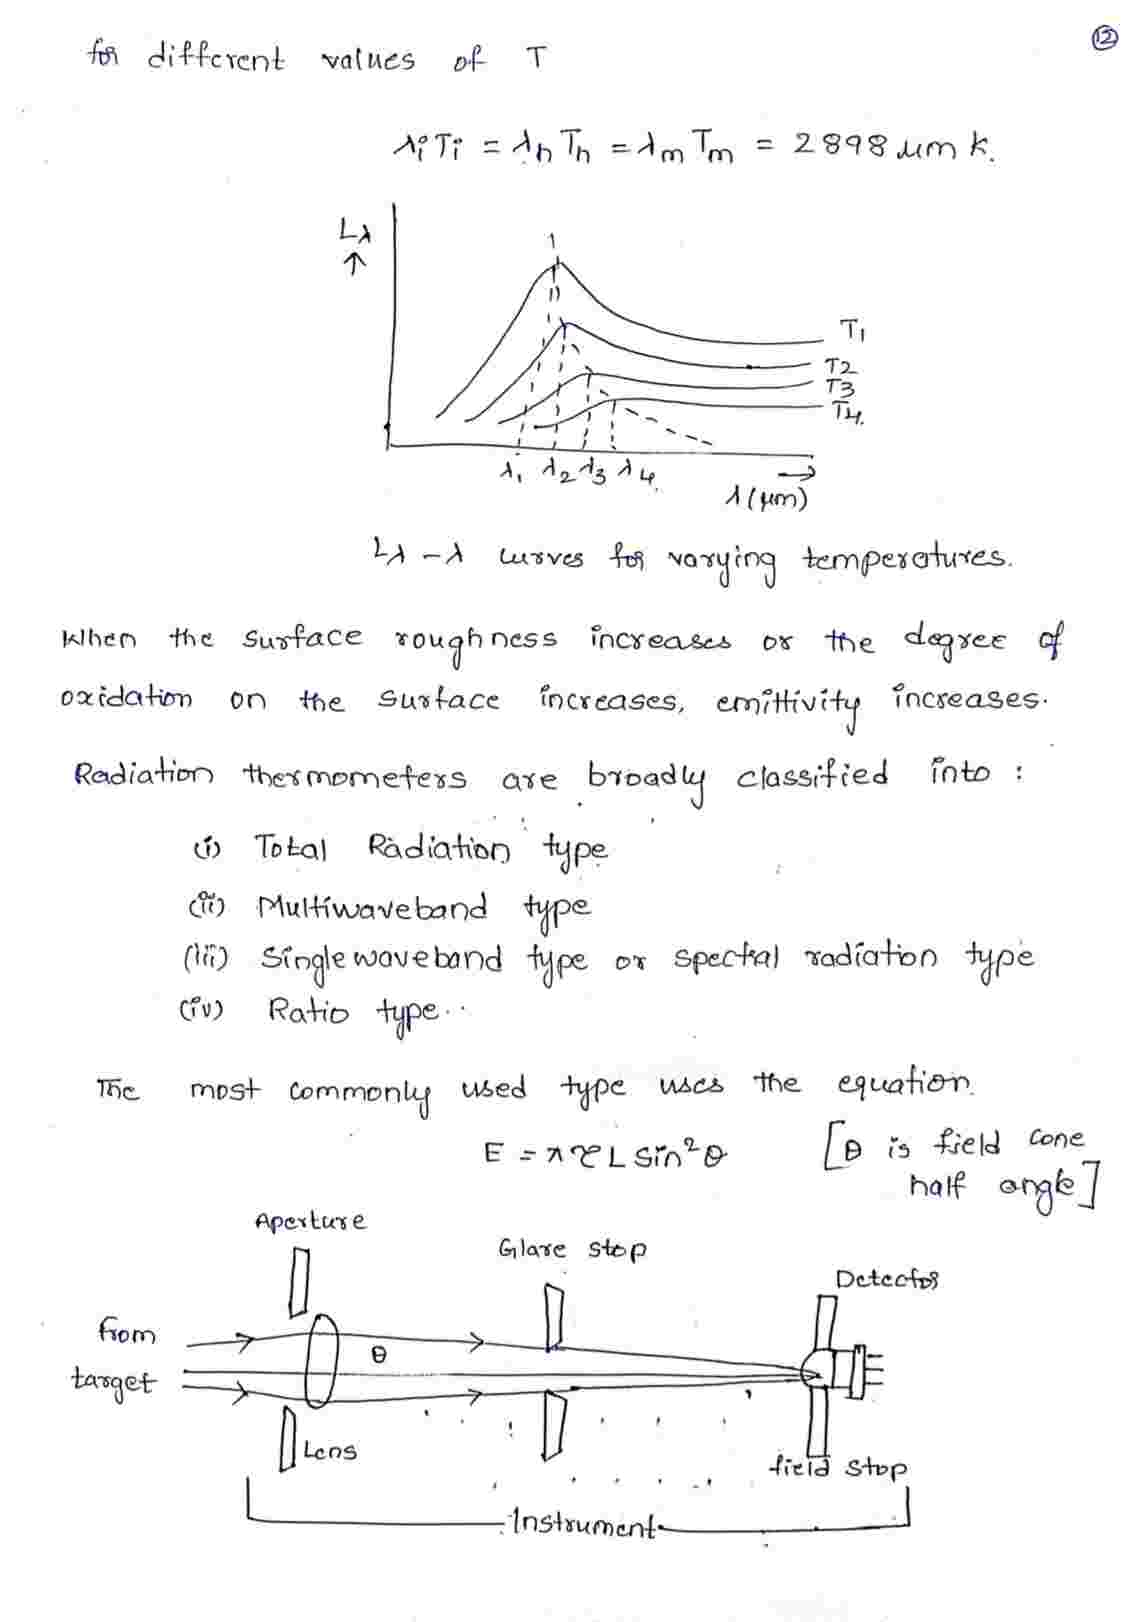 12
for different values of T
λiTi = λnTn = λmTm = 2898 μm k.
Lλ
↑
T1
T2
T3
T4.
λ1 λ2 λ3 λ4.
→
λ(μm)
Lλ - λ curves for varying temperatures.
When the surface roughness increases or the degree of
oxidation on the surface increases, emittivity increases.
Radiation thermometers are broadly classified into :
(i) Total Radiation type
(ii) Multiwaveband type
(iii) Single waveband type or spectral radiation type
(iv) Ratio type..
The most commonly used type uses the equation.
E = π τ L sin²θ [θ is field cone
half angle]
Aperture
Glare stop
Detector
from
θ
target
Lens
field stop
Instrument